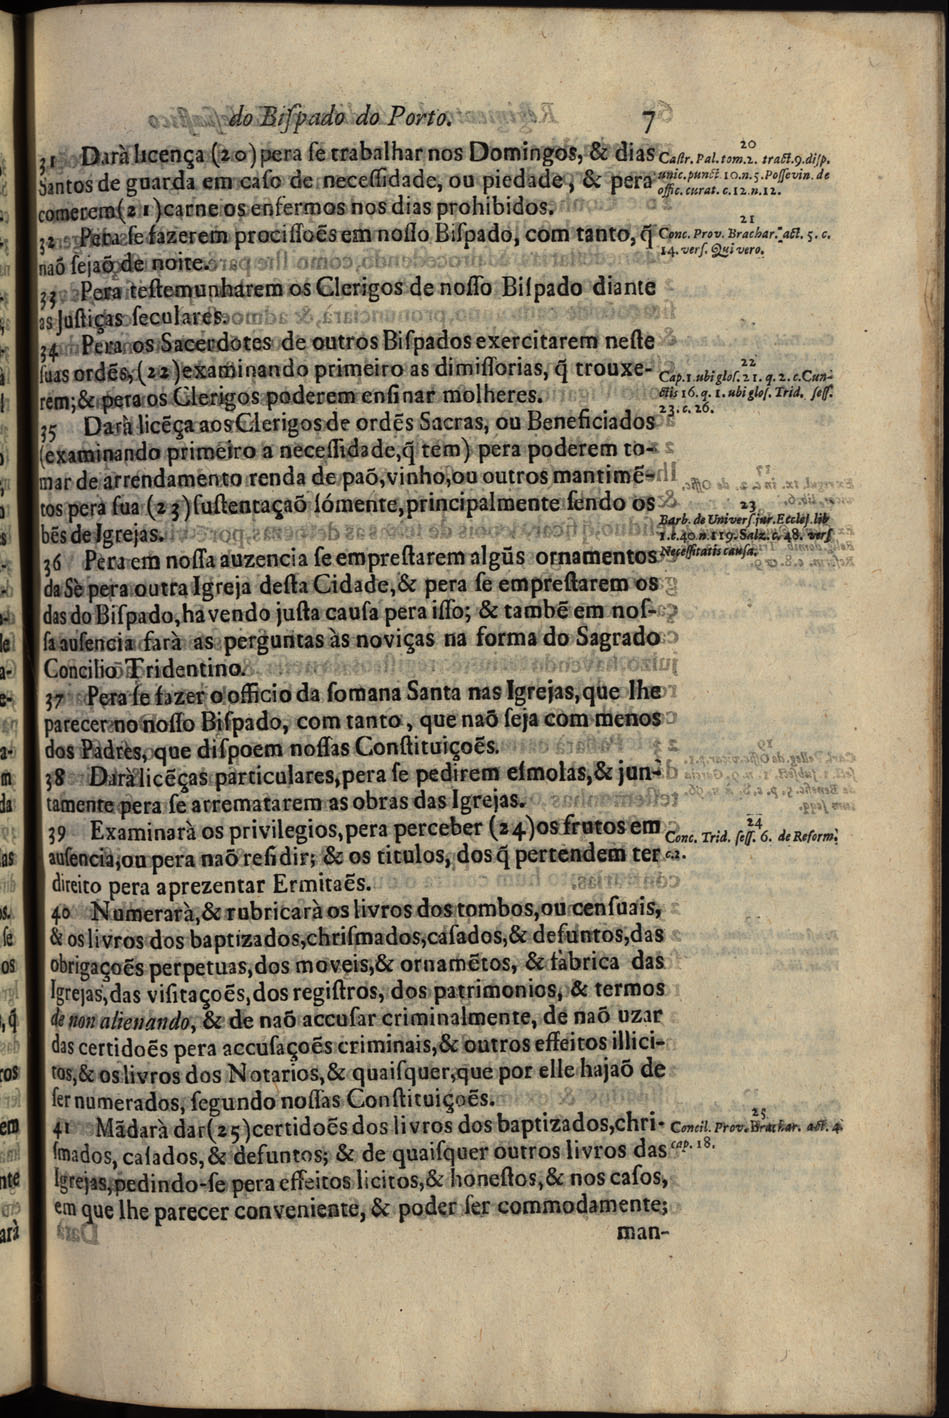 do Biſpado do Porto. 7
31 Darà licença (20) pera ſe trabalhar nos Domingos, & dias
Santos de guarda em caſo de neceſſidade, ou piedade, & pera
comerem (21) carne os enfermos nos dias prohibidos.
32 Pera ſe fazerem prociſſoẽs em noſſo Biſpado, com tanto, q̃
naõ ſejaõ de noite.
33 Pera teſtemunharem os Clerigos de noſſo Biſpado diante
as Juſtiças ſeculares.
34 Pera os Sacerdotes de outros Biſpados exercitarem neſte
ſuas ordẽs, (22) examinando primeiro as dimiſſorias, q̃ trouxe-
rem; & pera os Clerigos poderem enſinar molheres.
35 Darà licẽça aos Clerigos de ordẽs Sacras, ou Beneficiados
(examinando primeiro a neceſſidade, q̃ tem) pera poderem to-
mar de arrendamento renda de paõ, vinho, ou outros mantimẽ-
tos pera ſua (23) ſuſtentaçaõ ſómente, principalmente ſendo os
bẽs de Igrejas.
36 Pera em noſſa auzencia ſe empreſtarem algũs ornamentos
da Sè pera outra Igreja deſta Cidade, & pera ſe empreſtarem os
das do Biſpado, havendo juſta cauſa pera iſſo; & tambẽ em noſ-
ſa auſencia farà as perguntas às noviças na forma do Sagrado
Concilio Tridentino.
37 Pera ſe fazer o officio da ſomana Santa nas Igrejas, que lhe
parecer no noſſo Biſpado, com tanto, que naõ ſeja com menos
dos Padres, que diſpoem noſſas Conſtituiçoẽs.
38 Darà licẽças particulares, pera ſe pedirem eſmolas, & jun-
tamente pera ſe arrematarem as obras das Igrejas.
39 Examinarà os privilegios, pera perceber (24) os frutos em
auſencia, ou pera naõ reſidir; & os titulos, dos q̃ pertendem ter
direito pera aprezentar Ermitaẽs.
40 Numerarà, & rubricarà os livros dos tombos, ou cenſuais,
& os livros dos baptizados, chriſmados, caſados, & defuntos, das
obrigaçoẽs perpetuas, dos moveis, & ornamẽtos, & fabrica das
Igrejas, das viſitaçoẽs, dos regiſtros, dos patrimonios, & termos
de non alienando, & de naõ accuſar criminalmente, de naõ uzar
das certidoẽs pera accuſaçoẽs criminais, & outros effeitos illici-
tos, & os livros dos Notarios, & quaiſquer, que por elle hajaõ de
ſer numerados, ſegundo noſſas Conſtituiçoẽs.
41 Mãdarà dar (25) certidoẽs dos livros dos baptizados, chri-
ſmados, caſados, & defuntos; & de quaiſquer outros livros das
Igrejas, pedindo-ſe pera effeitos licitos, & honeſtos, & nos caſos,
em que lhe parecer conveniente, & poder ſer commodamente;
man-
20
Caſtr. Pal. tom. 2. tract. 9. diſp.
unic. punct. 10. n. 5. Poſſevin. de
offic. curat. c. 12. n. 12.
21
Conc. Prov. Brachar. act. 5. c.
14. verſ. Qui vero.
22
Cap. 1. ubi gloſ. 21. q. 2. c. Cun-
ctis 16. q. 1. ubi gloſ. Trid. ſeſſ.
23. c. 16.
23
Barb. de Univerſ. jur. Eccleſ. lib
1. c. 40. n. 119. Salz. c. 48. verſ
Neceſſitatis cauſa.
24
Conc. Trid. ſeſſ. 6. de Reform.
c. 2.
25
Concil. Prov. Brachar. act. 4.
cap. 18.